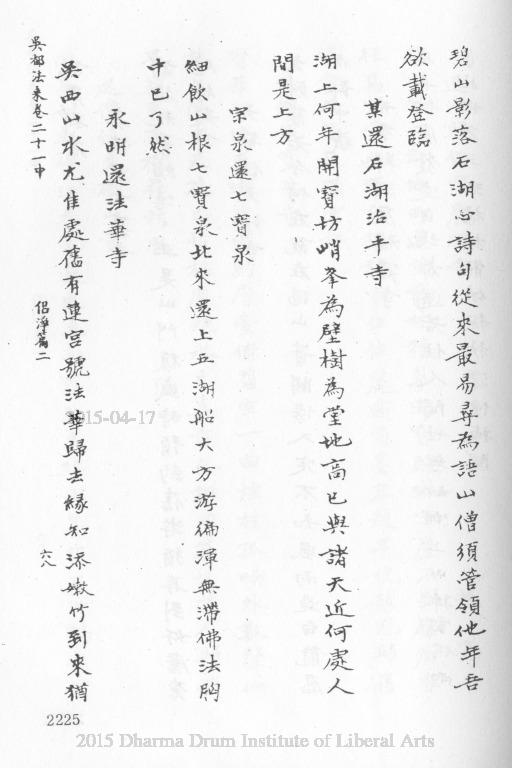 碧山影落石湖心詩句從來最易尋為語山僧須管領他年吾
欲載登臨
某還石湖治平寺
湖上何年開寶坊峭峯為壁樹為堂地高已與諸天近何處人
間是上方
宗泉還七寶泉
細飲山根七寶泉北來還上五湖船大方游徧渾無滯佛法胸
中已了然
永明還法華寺
吳西山水尤佳處舊有蓮宮號法華歸去緣知添嫩竹到來猶
吳都法乘卷二十一中
侶淨篇二
六八
2225
2015-04-17
2015 Dharma Drum Institute of Liberal Arts